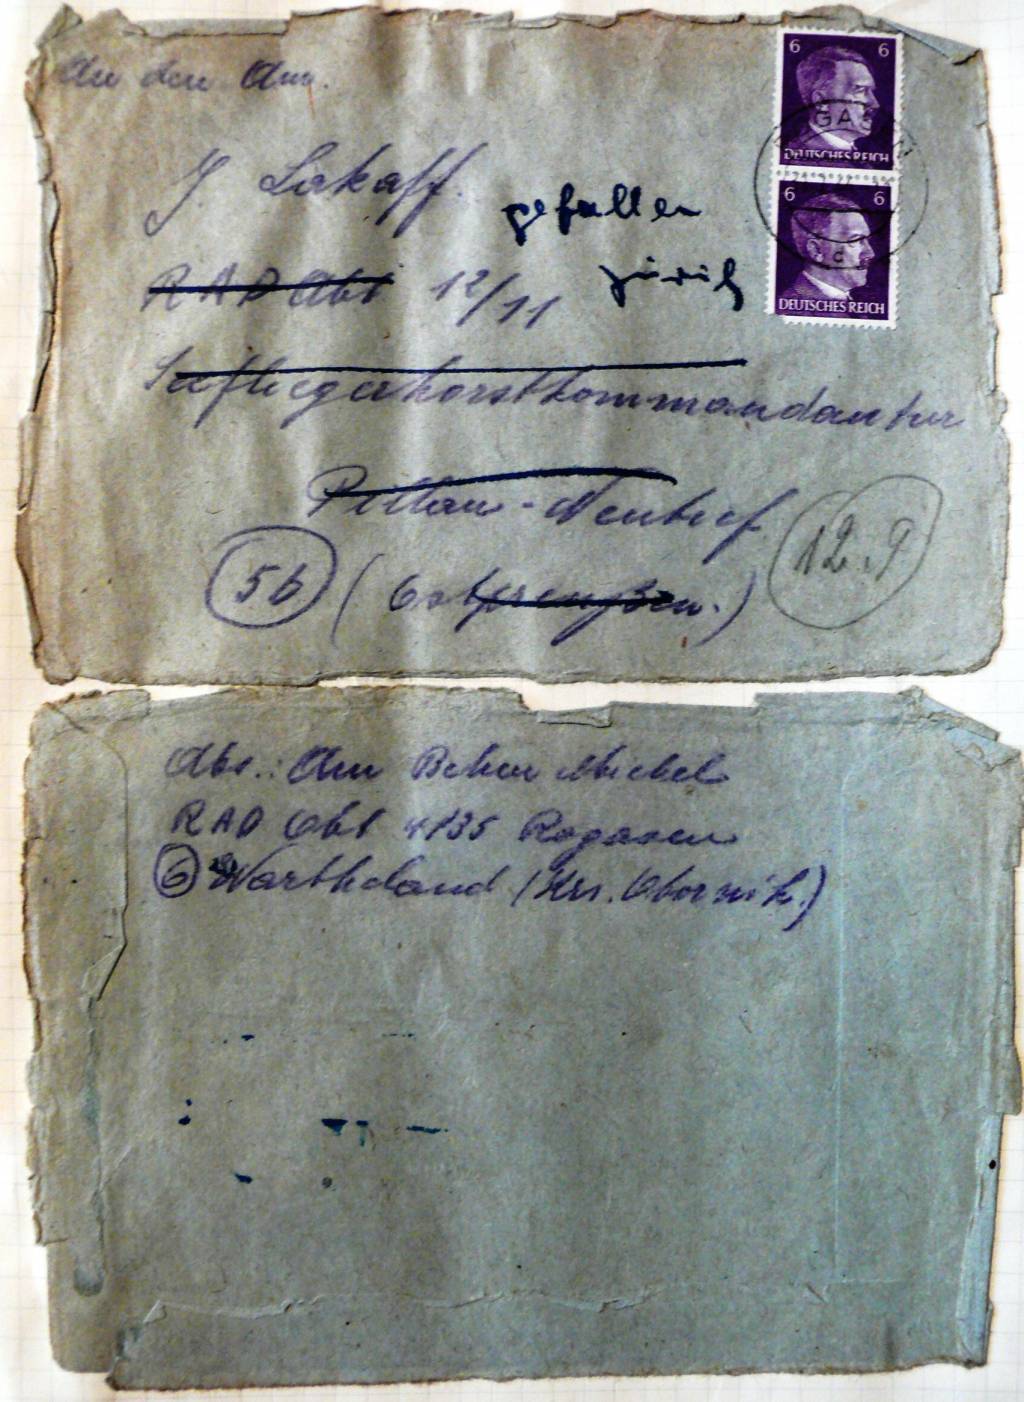 An den Am.
J. Lokaff.
gefallen
zürich
RAD Abt 12/11
Seefliegerhorstkommandantur
Pillau-Neutief
5b (Ostpreußen.)
12.9
6 6
DEUTSCHES REICH
6 6
DEUTSCHES REICH
Abs.: Am Behm Michel
RAD Abt 4/35 Rogasen
6 Wartheland (Krs. Obornik.)